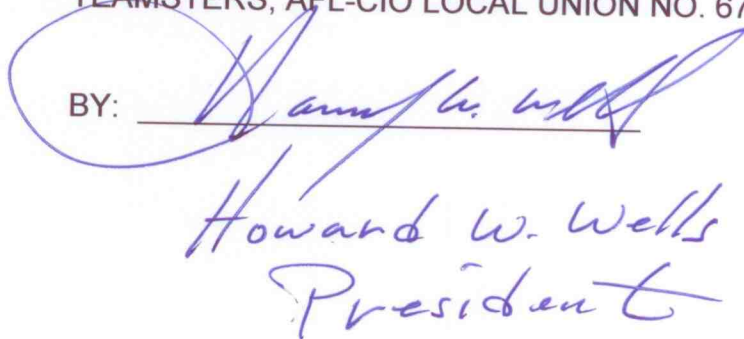 TEAMSTERS, AFL-CIO LOCAL UNION NO. 67
BY:
Howard W. Wells
President